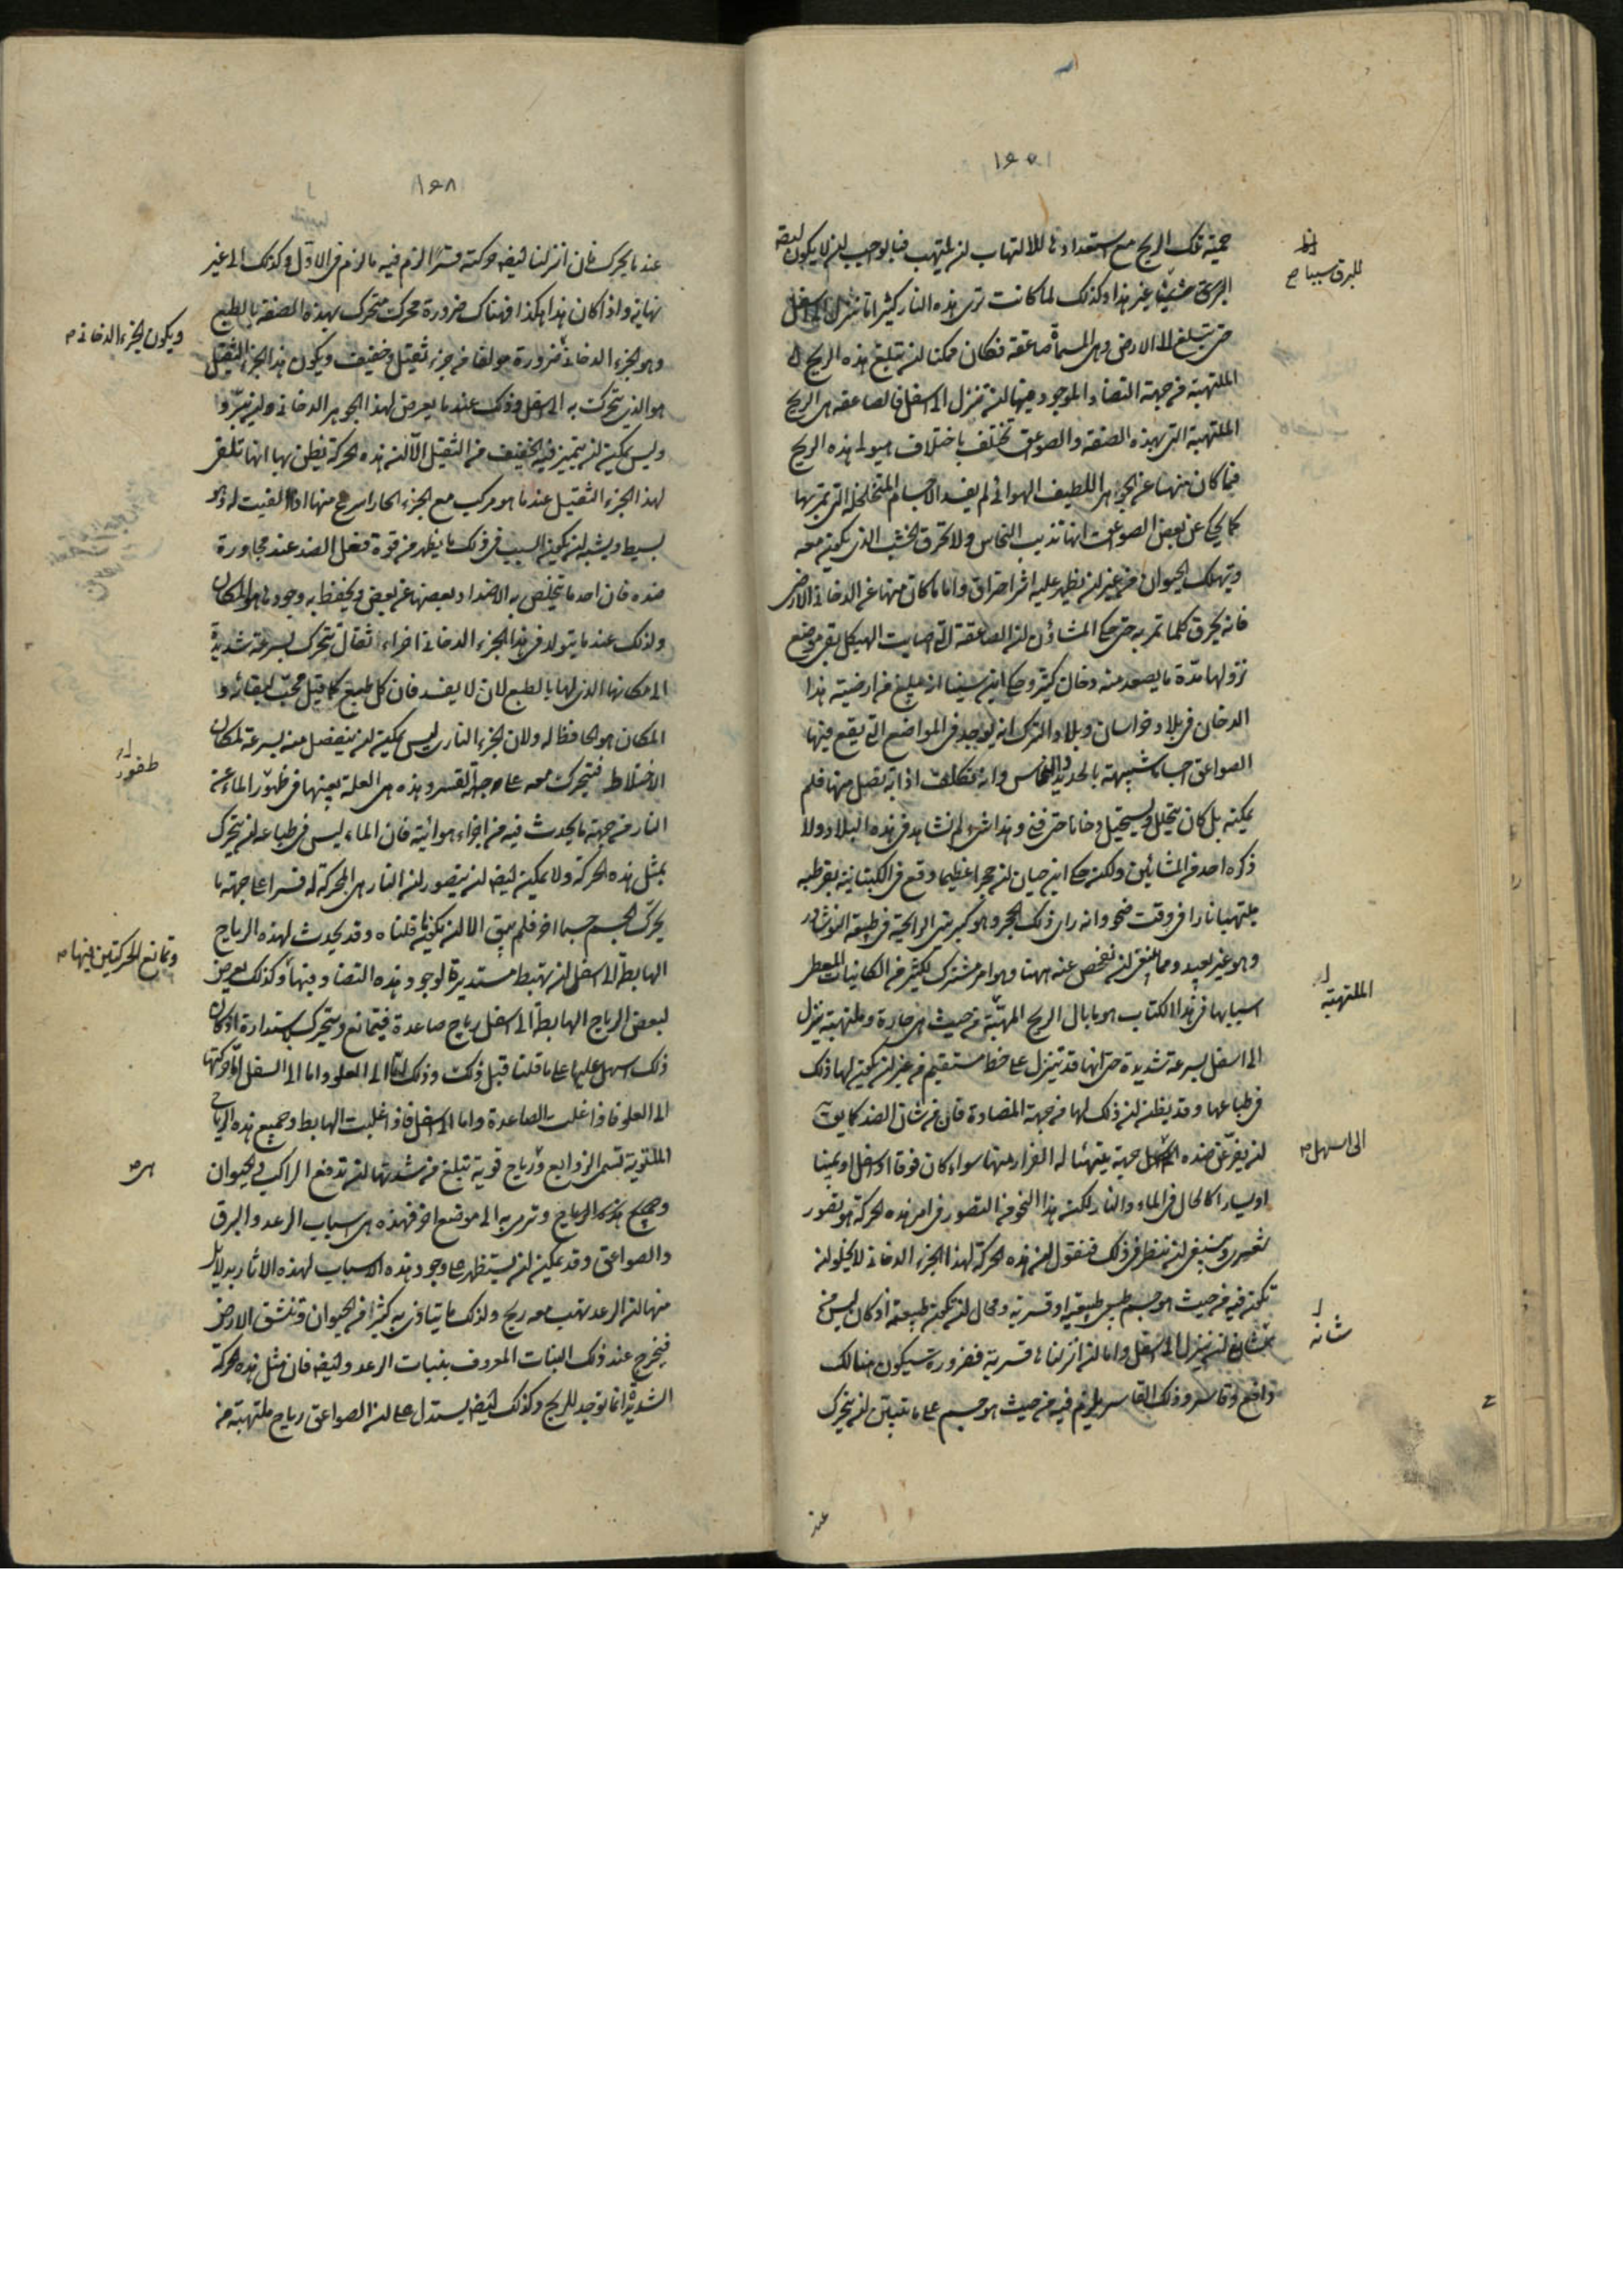 حمية تلك الريح مع استعدادها للالتهاب ان يلتهب فبالواجب ان لا يكون ايضا
البرق شيئا غير هذا وكذلك لما كانت ترى هذه النار كثيرا ما تنزل الى اسفل
حتى تبلغ الى الارض وهى المسماة صاعقة فكان ممكنا ان تبلغ هذه الريح
الملتهبة من جهة التضاد الموجود فيها ان تنزل الى اسفل فالصاعقة هى الريح
الملتهبة التى بهذه الصفة والصواعق تختلف باختلاف هيولى هذه الريح
فما كان منها عن الجوهر اللطيف الهوائى لم يفسد الاجسام المتخلخلة التى تمر بها
كما يحكى عن بعض الصواعق انها تذيب النحاس ولا تحرق الخشب الذى يكون معه
وتهلك الحيوان من غير ان يظهر عليه اثر احتراق واما ما كان منها عن الدخان الارضى
فانه يحرق كلما تمر به حتى حكى المشاؤن ان الصاعقة التى اصابت الهيكل بقى موضع
نزولها مدة ما يصعد منه دخان كثير وحكى ابن سينا انه يبلغ من ارضية هذا
الدخان فى بلاد خراسان وبلاد الترك انه يوجد فى المواضع التى يقع فيها
الصواعق اجساما شبيهة بالحديد والنحاس وانه تكلف اذابة نصل منها فلم
يمكنه بل كان يتحلل ويستحيل دخانا حتى فنى وهذا شىء لم نشاهد فى هذه البلاد ولا
ذكره احد من المشائين ولكن حكى ابن حيان ان حجرا عظيما وقع فى الكتبانية بقرطبة
ملتهبا نارا فى وقت صحو وانه راى ذلك الحجر وهو كبريتى الرائحة فى طبيعة النوشادر
وهو غير بعيد ومما ينبغى ان نفحص عنه ههنا وهو امر مشترك لكثير من الكائنات المعطى
اسبابها فى هذا الكتاب هو ما بال الريح المهبة من حيث هى حارة وملتهبة ينزل
الى اسفل بسرعة شديدة حتى انها قد تنزل على خط مستقيم من غير ان يكون لها ذلك
فى طباعها وقد يظن ان ذلك لها من جهة المضادة فان من شان الضد كما يق
ان يفر عن ضده الى كل جهة يتهيئا له الفرار منها سواء كان فوقا او اسفل او يمينا
او يسارا كالحال فى الماء والنار لكن هذا النحو من التصور فى امر هذه الحركة هو تصور
شعرى وينبغى ان ننظر فى ذلك فنقول ان هذه الحركة لهذا الجزء الدخانى لا يخلو ان
تكون فيه من حيث هو جسم طبيعى طبيعية او قسرية ومحال ان تكون طبيعية اذ كان ليس من
شانه ان ينزل الى اسفل واما ان انزلناها قسرية فضرورة سيكون هنالك
دافع وقاسر وذلك القاسر يلزم فيه من حيث هو جسم على ما تبين ان يتحرك
عند
للبرق سببا
الملتهبة
الى اسهل
شانه
١٤٨
عند ما يحرك فان انزلنا ايضا حركته قسرا لزم فيه ما لزم فى الاول وكذلك الى غير
نهاية واذا كان هذا هكذا فهناك ضرورة محرك متحرك بهذه الصفة بالطبع
وهو الجزء الدخانى ضرورة مولفا من جزء ثقيل وخفيف ويكون هذا الجزء الثقيل
هو الذى يتحرك به الى اسفل وذلك عند ما يعرض لهذا الجوهر الدخانى ان يبرد او
وليس يمكن ان يتميز فيه الخفيف من الثقيل الا ان هذه الحركة يظن بها انها تلفى
لهذا الجزء الثقيل عند ما هو مركب مع الجزء الحار اسرع منها اذا الفيت له وهو
بسيط ويشبه ان يكون السبب فى ذلك ما يظهر من قوة فعل الضد عند مجاورة
ضده فان احد ما يتخلص به الاضداد بعضها عن بعض ويحفظ به وجودها هو المكان
ولذلك عند ما يتولد فى هذا الجزء الدخانى اجزاء ثقال يتحرك بسرعة شديدة
الى مكانها الذى لها بالطبع لان لا يفسد فان كل طبيعى كما قيل محب لبقائه و
المكان هو الحافظ له ولان الجزء النارى ليس يمكن ان ينفصل منه بسرعة لمكان
الاختلاط فيتحرك معه على جهة القسر وهذه هى العلة بعينها فى ظهور الماء عن
النار من جهة ما يحدث فيه من اجزاء هوائية فان الماء ليس فى طباعه ان يتحرك
بمثل هذه الحركة ولا يمكن ايضا ان يتصور ان النار هى المحركة له قسرا على جهة ما
يحرك الجسم جسما اخر فلم يبق الا ان يكون ما قلناه وقد يحدث لهذه الرياح
الهابطة الى اسفل ان تهبط مستديرة لوجود هذه التضاد فيها وكذلك يعرض
لبعض الرياح الهابطة الى اسفل رياح صاعدة فيتمانع ويتحرك باستدارة اذ كان
ذلك اسهل عليها على ما قلنا قبل ذلك وذلك اما الى العلو واما الى السفل اما حركتها
الى العلو فاذا غلبت الصاعدة واما الى اسفل فاذا غلبت الهابط وجميع هذه الرياح
الملتوية تسمى الزوابع وهى رياح قوية تبلغ من شدتها ان تدفع المراكب والحيوان
وجميع هذه الرياح وترمى به الى موضع اخر فهذه هى اسباب الرعد والبرق
والصواعق وقد يمكن ان يستظهر على وجود هذه الاسباب لهذه الاثار بدلائل
منها ان الرعد تهب معه ريح ولذلك ما يتاذى به كثير من الحيوان وتنشق الارض
فيخرج عند ذلك النبات المعروف بنبات الرعد وايضا فان مثل هذه الحركة
الشديدة انما توجد للريح وكذلك ايضا يستدل على ان الصواعق رياح ملتهبة من
ويكون الجزء الدخانى
طفور
وتمانع الحركتين فيها
هى